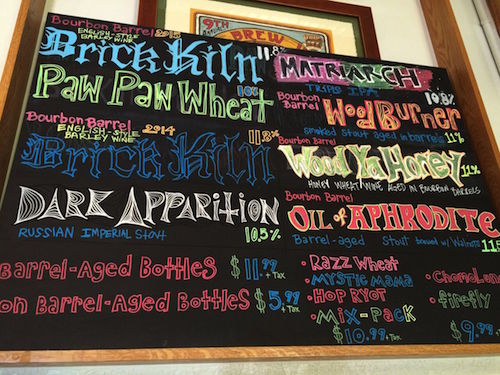 9TH
BREW
Bourbon Barrel 2015
ENGLISH-STYLE
BARLEY WINE
11.8%
Brick Kiln
Paw Paw Wheat
10%
Bourbon Barrel
ENGLISH-STYLE 2014
BARLEY WINE
11.8%
Brick Kiln
DARK APPARITION
RUSSIAN IMPERIAL Stout
10.5%
MATRIARCH
TRIPLE IPA
10.8%
Bourbon
Barrel
WoodBurner
smoked stout aged in barrels 11%
Bourbon Barrel
Wood Ya Honey
11%
HONEY WHEAT WINE AGED IN BOURBON BARRELS
Bourbon Barrel
OIL of APHRODITE
Barrel-aged Stout brewed w/ Walnuts
Barrel-Aged Bottles $11.99 + Tax
on Barrel-Aged Bottles $5.99 + Tax
• RAZZ WHEAT
• MYSTIC MAMA
• HOP RYOT
• Mix-PACK
$10.99 + Tax
• firefly
$9.99